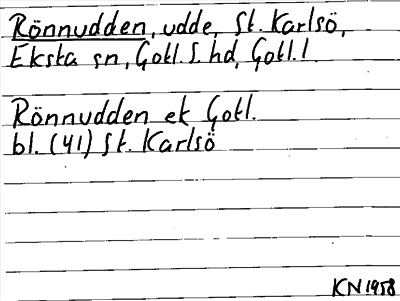 Rönnudden, udde, St. Karlsö,
Eksta sn, Gotl. S. hd, Gotl. l.
Rönnudden ek Gotl.
bl. (41) St. Karlsö
KN 1958